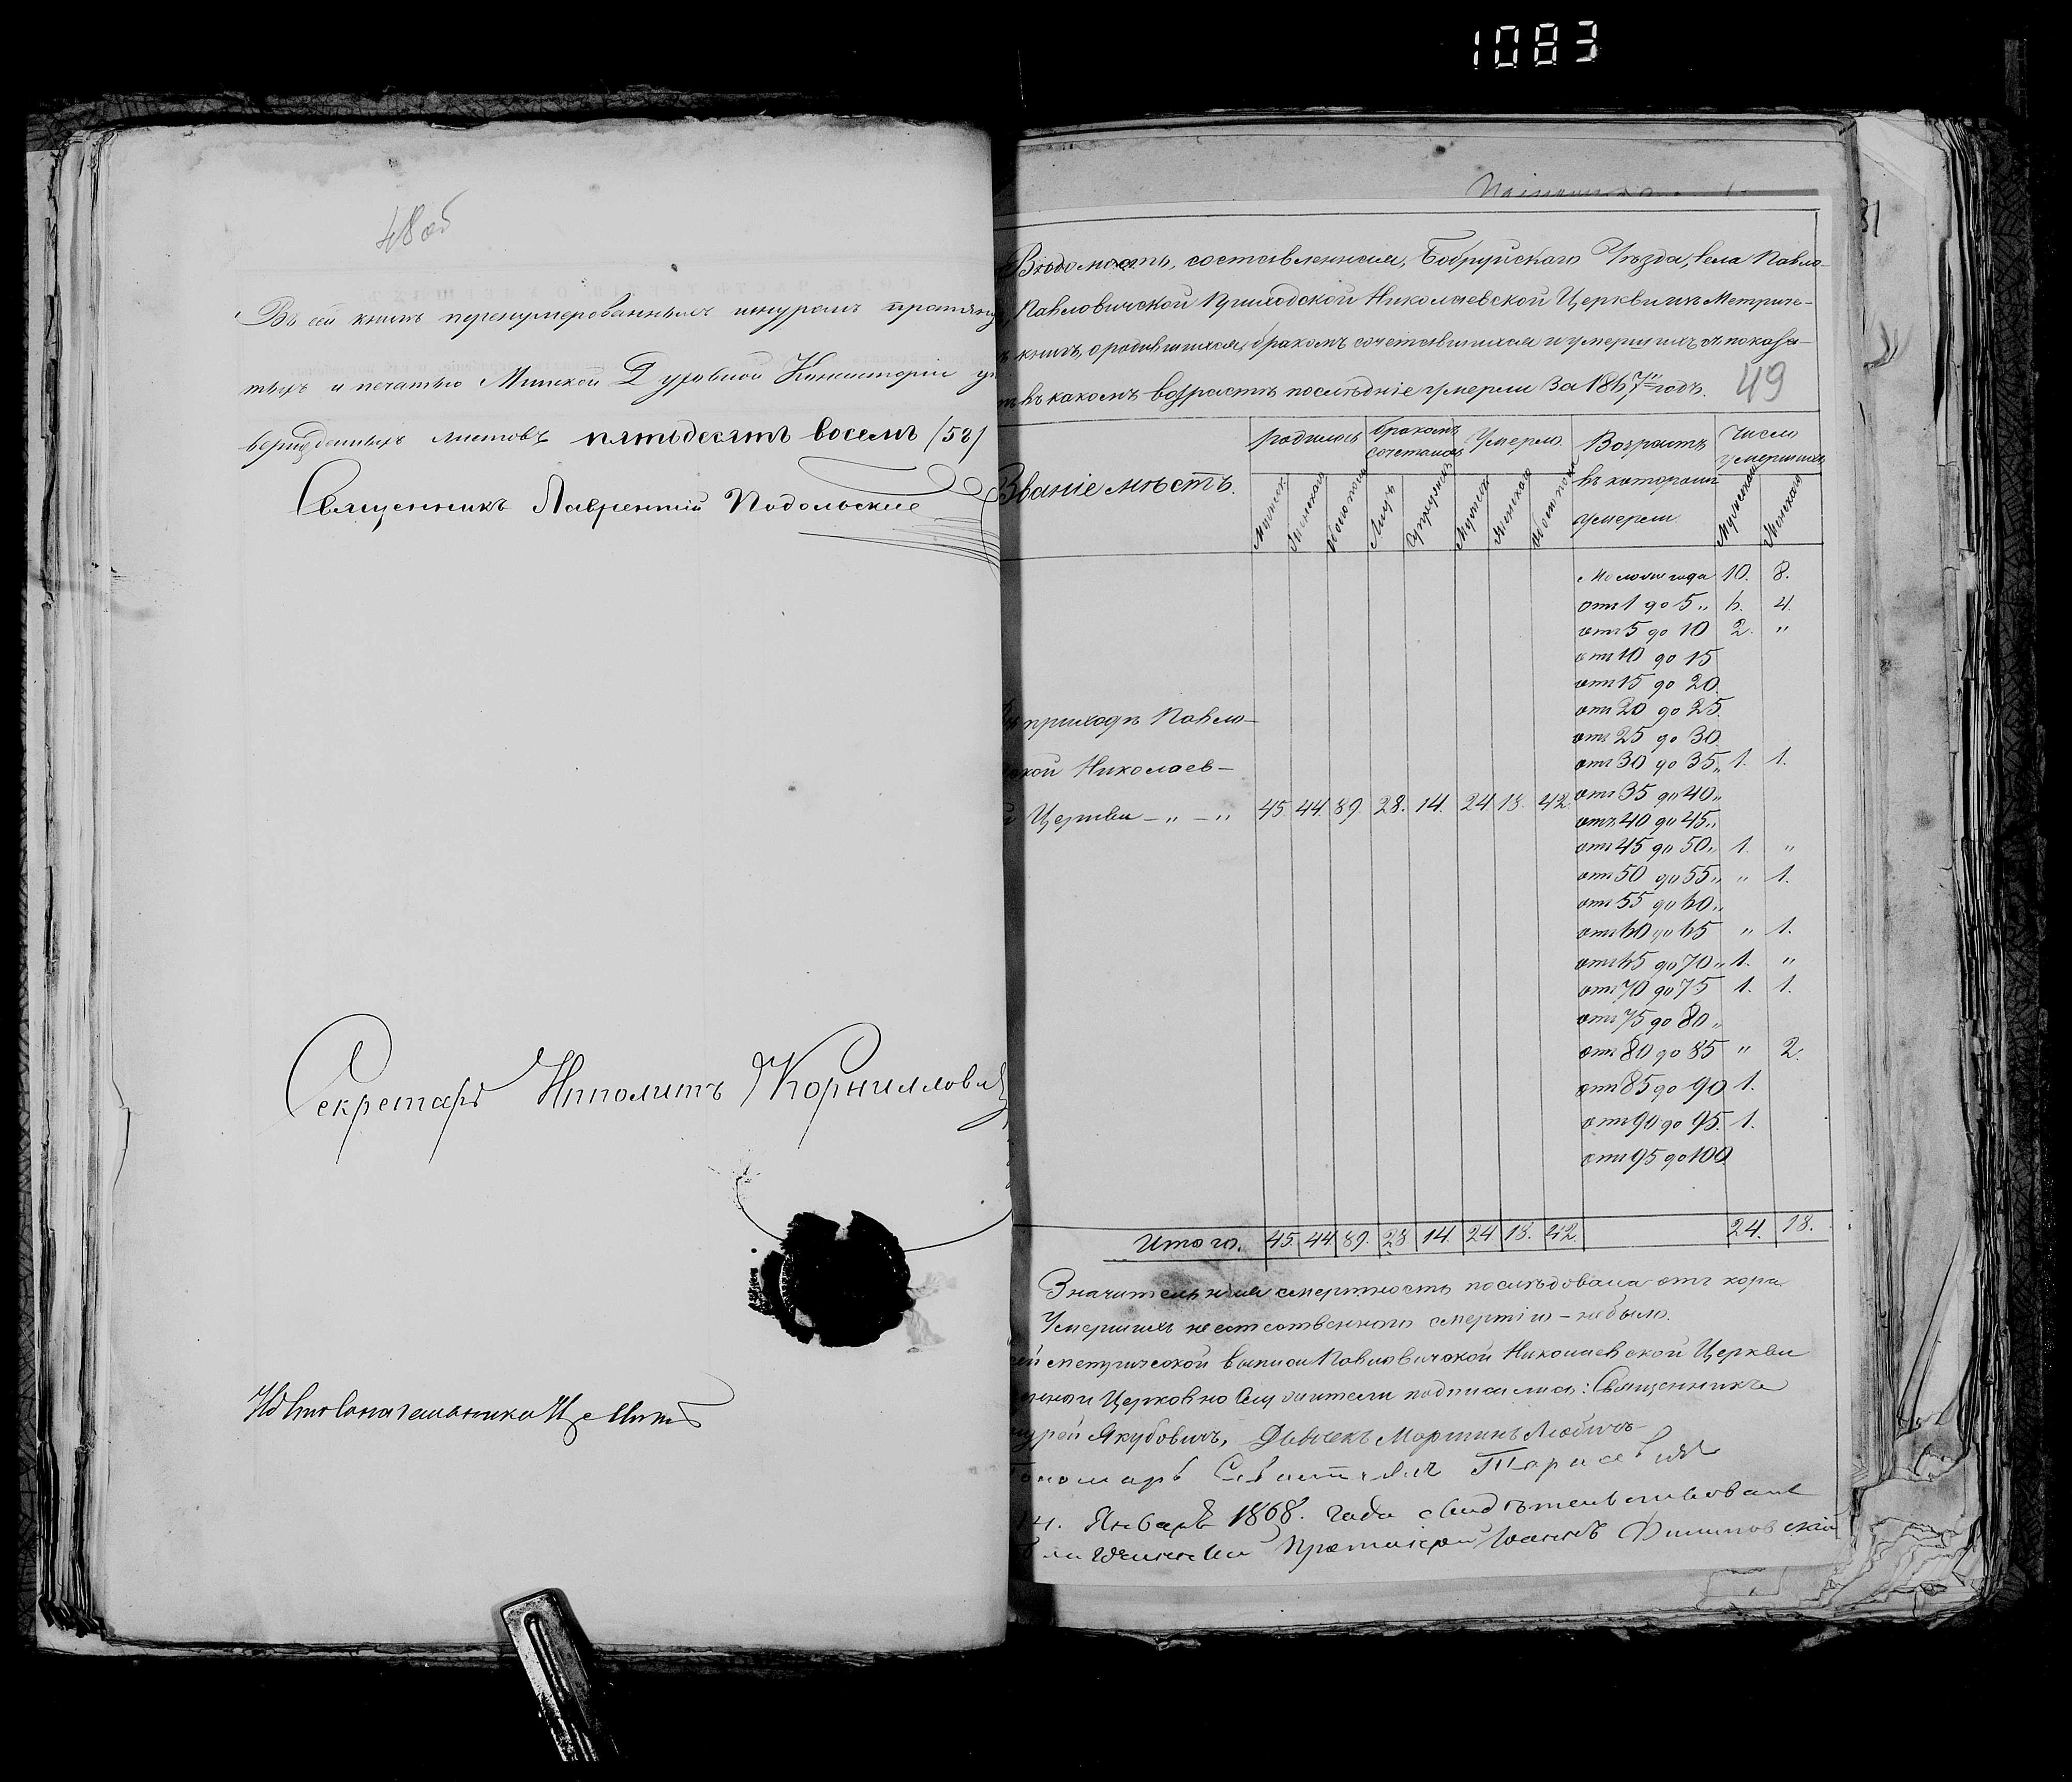 1083
48 об
Въ сей книгѣ перенумерованныхъ шнуромъ протяну
тыхъ и печатью Минской Духовной Консисторіи ут
вержденныхъ листовъ пятьдесятъ восемь (58)
Священникъ Лаврентій Подольскій
Секретарь Ипполитъ Корниллови
81
Вѣдомость, составленная, Бобруйскаго Уѣзда, села Павло-
Павловичской Приходской Николаевской Церкви изъ Метриче-
книгъ, о родившихся, бракомъ сочетавшихся и умершихъ съ показа-
въ какомъ возрастѣ послѣдніе умерли за 1867й годъ.
49
Званіе мѣстъ.
Родилось
бракомъ сочеталось
Умерло
Возрастъ въ которомъ умерли
Число умершихъ
Мужеска
Женскаго
Обоего пола
Лицъ
Супружест
Мужеска
Женскаго
Обоего пола
Мужескаго
Женскаго
приходѣ Павло-
ской Николаев-
Церкви - " - " 45. 44. 89. 28. 14. 24. 18. 42.
Моложе года 10. 8.
отъ 1 до 5 " 6. 4.
отъ 5 до 10 2. "
отъ 10 до 15
отъ 15 до 20.
отъ 20 до 25.
отъ 25 до 30.
отъ 30 до 35 " 1. 1.
отъ 35 до 40 "
отъ 40 до 45 "
отъ 45 до 50 " 1. "
отъ 50 до 55 " " 1.
отъ 55 до 60 "
отъ 60 до 65 " 1.
отъ 65 до 70 " 1. "
отъ 70 до 75 1. 1.
отъ 75 до 80 "
отъ 80 до 85 " 2.
отъ 85 до 90 1.
отъ 90 до 95. 1.
отъ 95 до 100.
Итого. 45. 44. 89. 28. 14. 24. 18. 42. 24. 18.
Значительная смертность послѣдовала отъ кора
Умершихъ неестественною смертію - небыло.
сей метрической выписи Павловичской Николаевской Церкви
Церковно Служители подписались: Священникъ
Якубовичъ, Дьячекъ Мартинъ Любичъ
Пономарь Севастьянъ Тарасевичъ
14. Января 1868. года свидѣтельствовалъ
Благочинный Протоіерей Іоаннъ Филиповскій